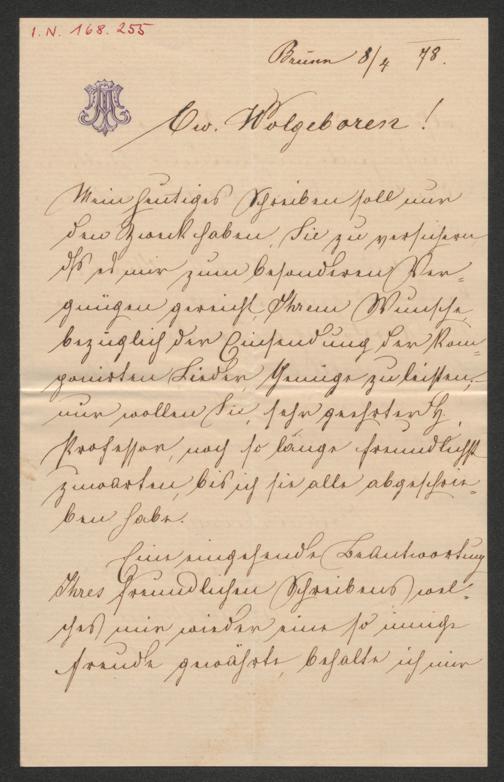 I.N. 168.255
Brünn 8/4 78.
Ew. Wolgeboren!
Mein heutiges Schreiben soll nur
den Zweck haben, Sie zu versichern
dß es mir zum besonderen Ver-
gnügen gereicht, Ihrem Wunsche,
bezüglich der Einsendung der Kom-
ponirten Lieder Genüge zu leisten,
nur wollen Sie, sehr geehrter H.
Professor, noch so lange freundlichst
zuwarten, bis ich sie alle abgeschrie-
ben habe.
Eine eingehende Beantwortung
Ihres freundlichen Schreibens, wel-
ches mir wieder eine so innige
Freude gewährte, behalte ich mir